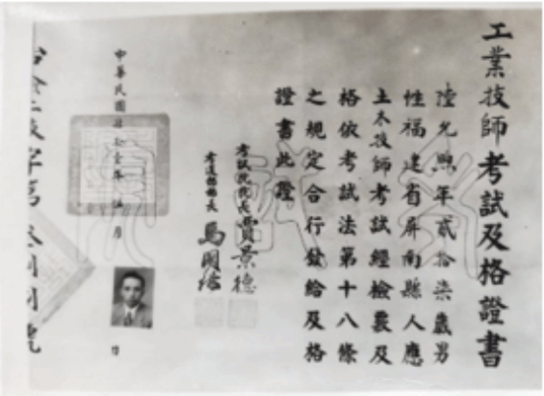 工業技師考試及格證書
陸允熙年貳拾柒歲男
性福建省屏南縣人應
土木技師考試經檢覈及
格依考試法第十八條
之規定合行發給及格
證書此證
考試院院長賈景德
考選部部長馬國琳
中華民國 年 月 日